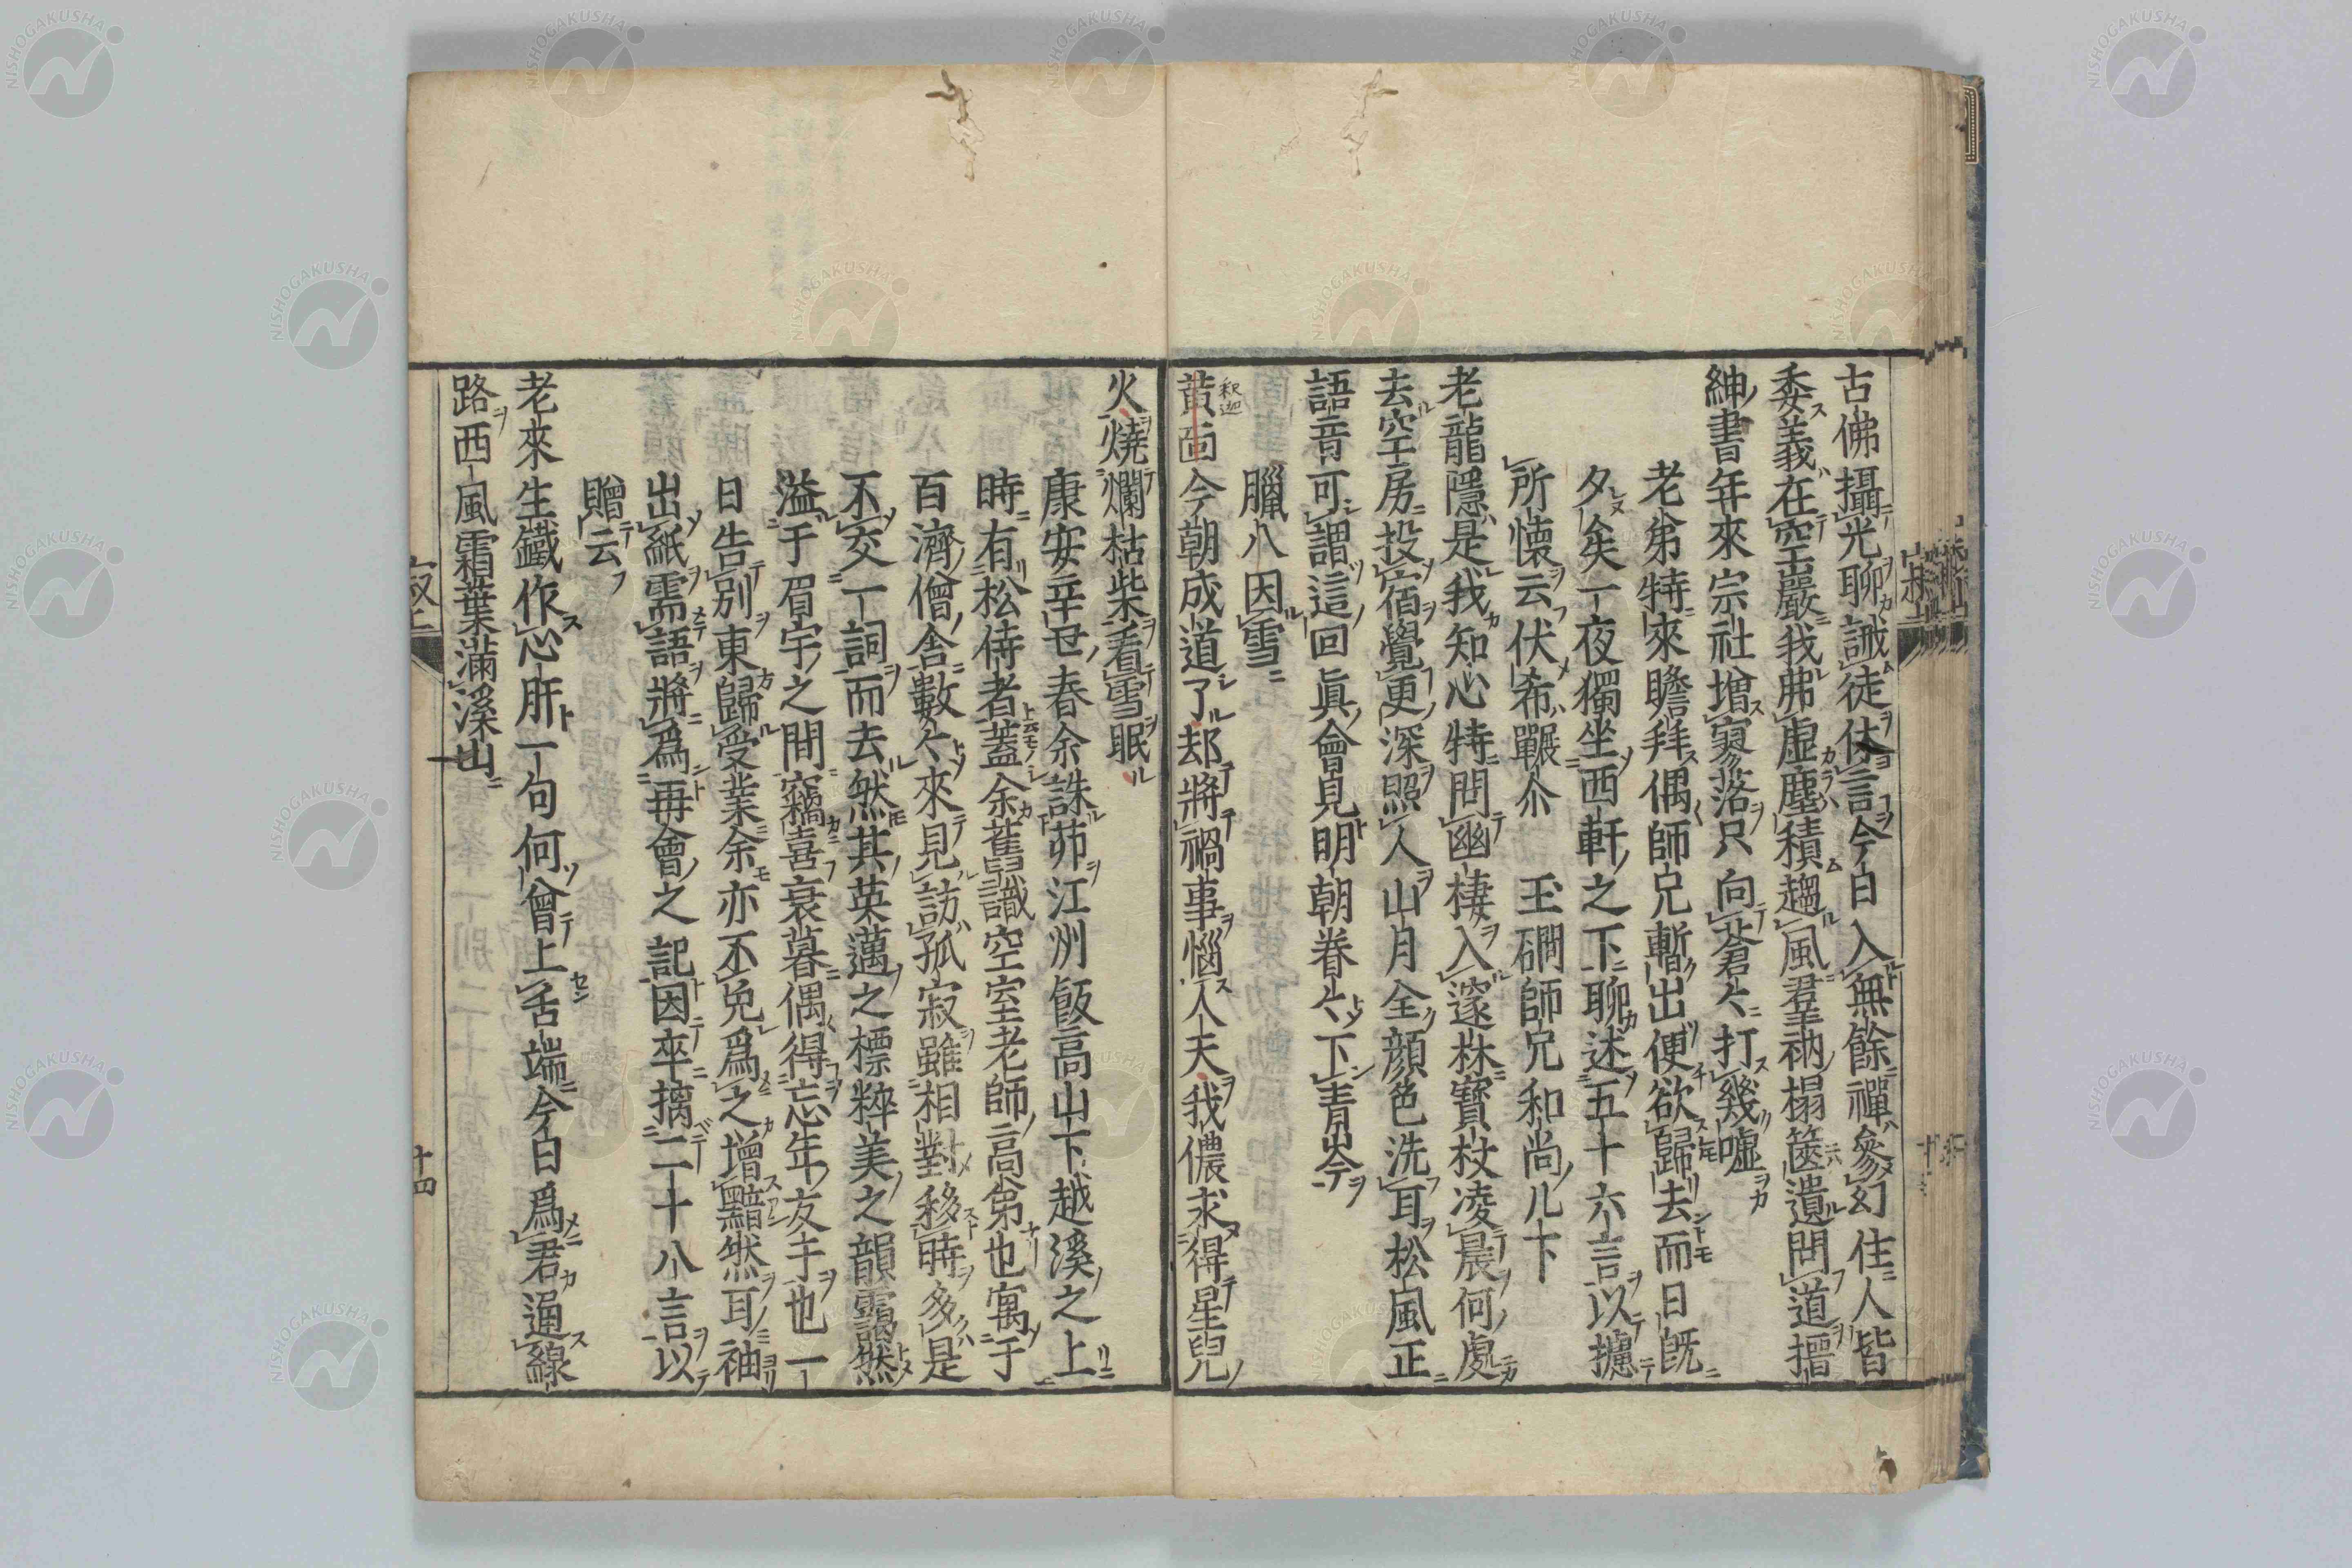 古佛攝光聊誡徒休言今日入無餘禪參幻住人皆
委義在空巖我弗虛塵積趨風羣衲榻篋遺問道搢
紳書年來宗社增寥落只向蒼々打幾噓
老弟特來瞻拜偶師兄暫出便欲歸去而日既
夕矣一夜獨坐西軒之下聊述五十六言以攄
所懷云伏希冁尒 玉磵師兄和尚几下
老龍隱是我知心特問幽棲入邃林寶杖凌晨何處
去空房投宿覺更深照人山月全顏色洗耳松風正
語音可謂這回眞會見明朝眷々下青岑
臘八因雪
黃面今朝成道了却將禍事惱人天我儂求得星兒
釈迦
火燒爛枯柴看雪眠
康安辛丑春余誅茆江州飯高山下越溪之上
時有松侍者蓋余舊識空室老師高弟也寓于
百濟僧舍數々來見訪孤寂雖相對移時多是
不交一詞而去然其英邁之標粹美之韻靄然
溢于眉宇之間竊喜衰暮偶得忘年友于也一
日告別東歸受業余亦不免爲之增黯然耳袖
出紙需語將爲再會之記因卒摛二十八言以
贈云
老來生鐵作心肝一句何曾上舌端今日爲君通線
路西風霜葉滿溪山
寂上
十四